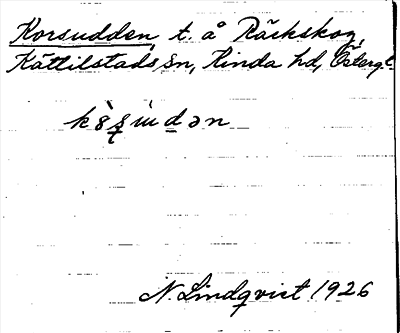 Korsudden, t. å Räckskog,
Kättilstads sn, Kinda hd, Österg.
N. Lindqvist 1926